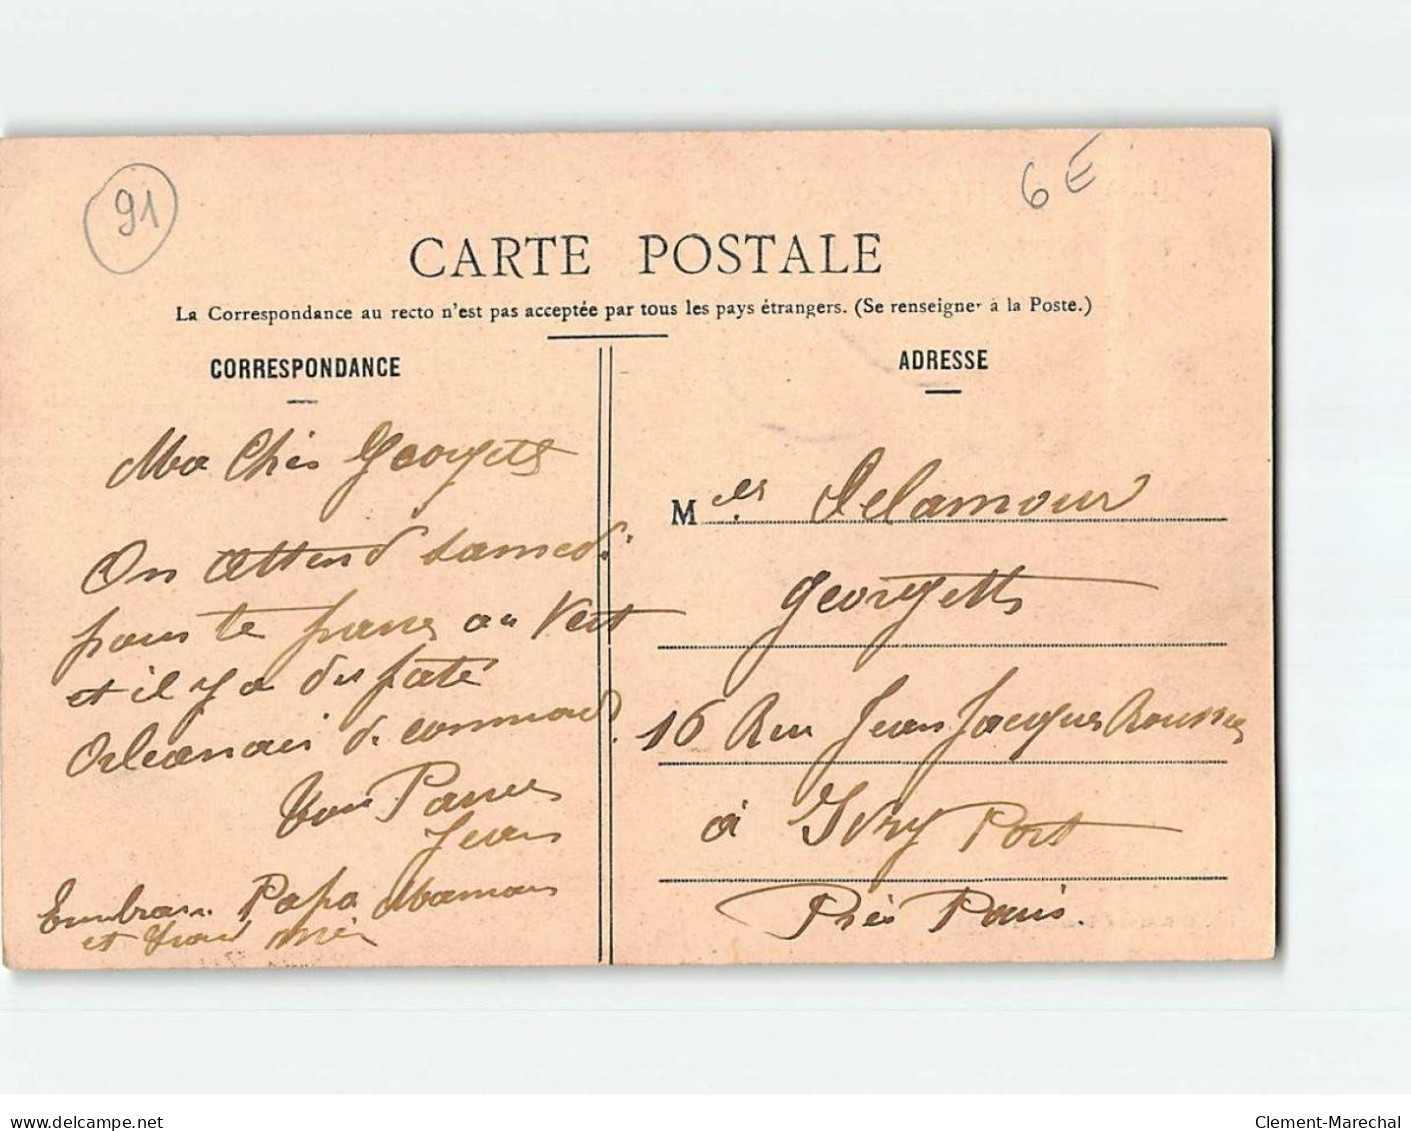 91
6 E
CARTE POSTALE
La Correspondance au recto n'est pas acceptée par tous les pays étrangers. (Se renseigner à la Poste.)
CORRESPONDANCE
Ma Chèr Georgette
On attend samedi
pour te au Vert
et il y a des paté
Orleanais de commandé.
Ton
Jean
Embrasse Papa Maman
et
ADRESSE
M elle Delamour
Georgette
16 Rue Jean Jacques Rousseau
à Ivry Port
Près Paris.
www.delcampe.net
Clement-Marechal